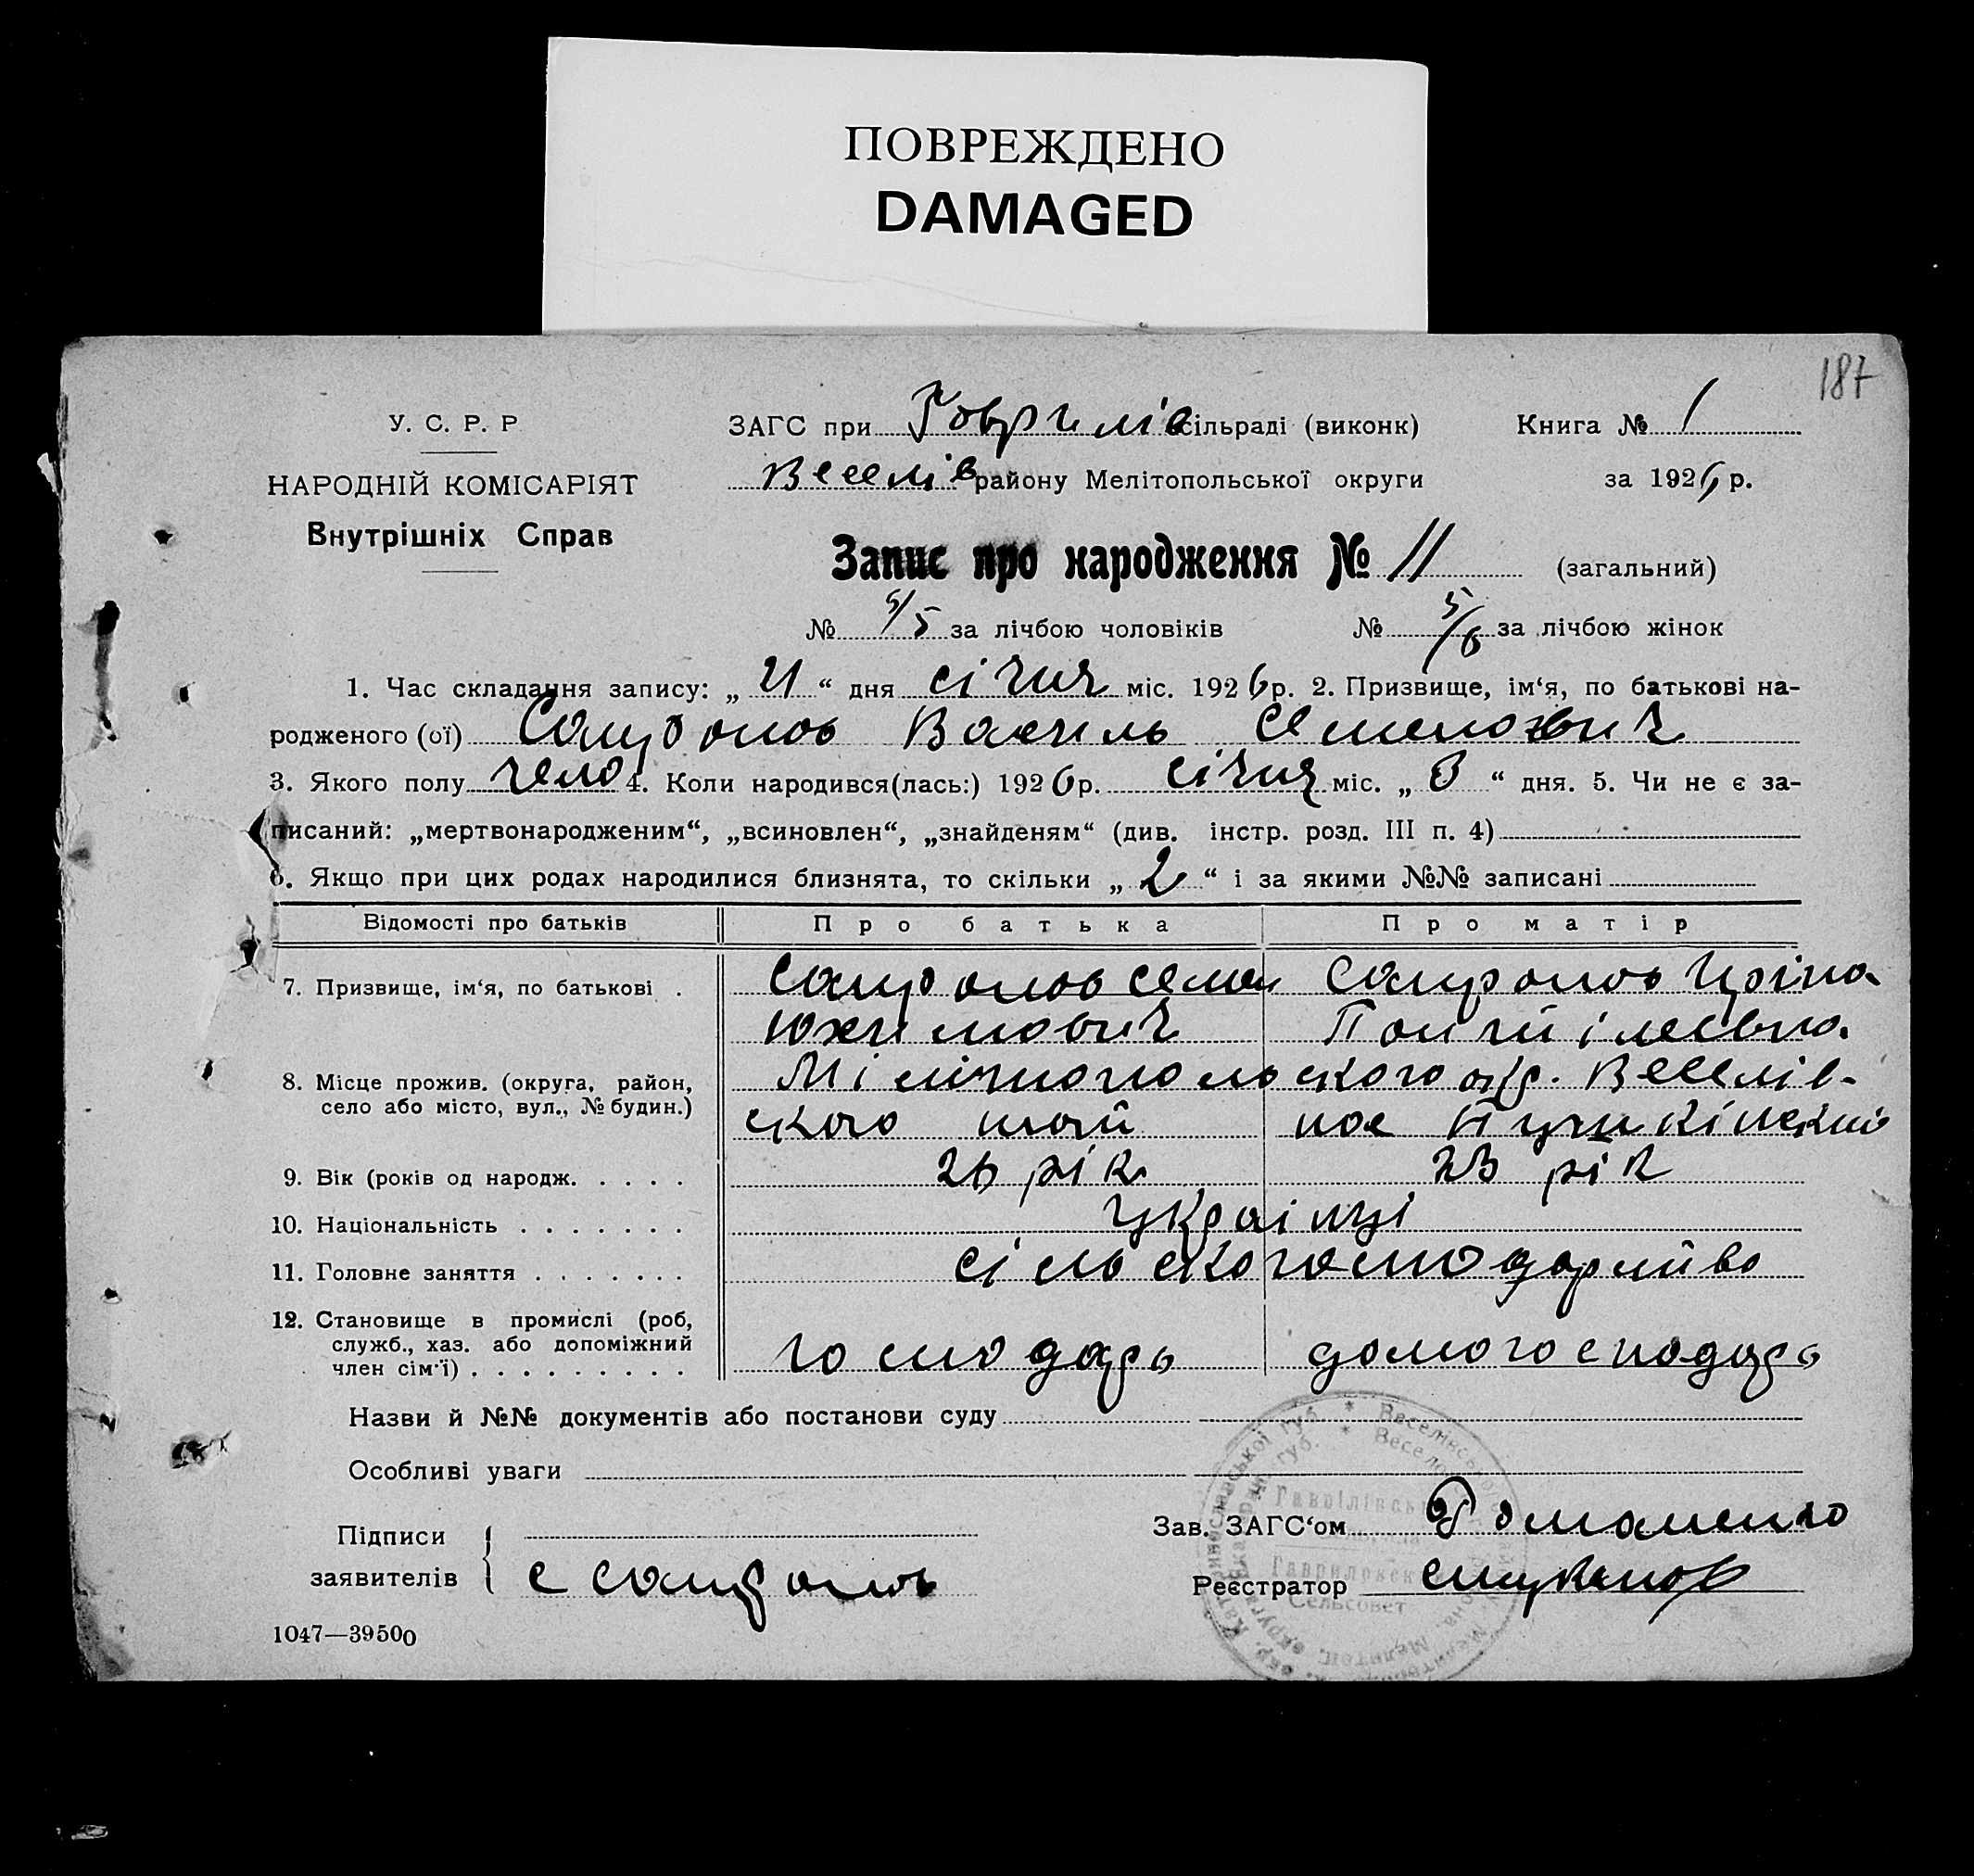 ПОВРЕЖДЕНО
DAMAGED
187
У. С. Р. Р
НАРОДНІЙ КОМІСАРІЯТ
Внутрішніх Справ
ЗАГС при Говрилів сільраді (виконк) Книга № 1
Веселів району Мелітопольської округи за 1926 р.
Запис про народження № 11 (загальний)
№ /5 за лічбою чоловіків № 5/6 за лічбою жінок
1. Час складання запису: „ 21 “ дня січня міс. 1926 р. 2. Призвище, ім‘я, по батькові на-
родженого (ої) Василь Семенович
3. Якого полу чело 4. Коли народився(лась:) 1926 р. січня міс. „ “ дня. 5. Чи не є за-
писаний: „мертвонародженим“, „всиновлен“, „знайденям“ (див. інстр. розд. III п. 4)
6. Якщо при цих родах народилися близнята, то скільки „ 2 “ і за якими №№ записані
Відомості про батьків Про батька Про матір
7. Призвище, ім‘я, по батькові . Семен Юхимович
8. Місце прожив. (округа, район, окр. Веселів-
село або місто, вул., № будин.) ського
9. Вік (років од народж. . . . . 26 рік 23 рік
10. Національність . . . . . . . українці
11. Головне заняття . . . . . . .
12. Становище в промислі (роб,
служб., хаз. або допоміжний господарь домогосподарь
член сім'ї) . . . . . . . . .
Назви й №№ документів або постанови суду
Особливі уваги
Підписи
заявителів
Зав. ЗАГС‘ом Романенко
Реєстратор
Гаврилівськ
Гавриловский
Сельсовет
1047—39500